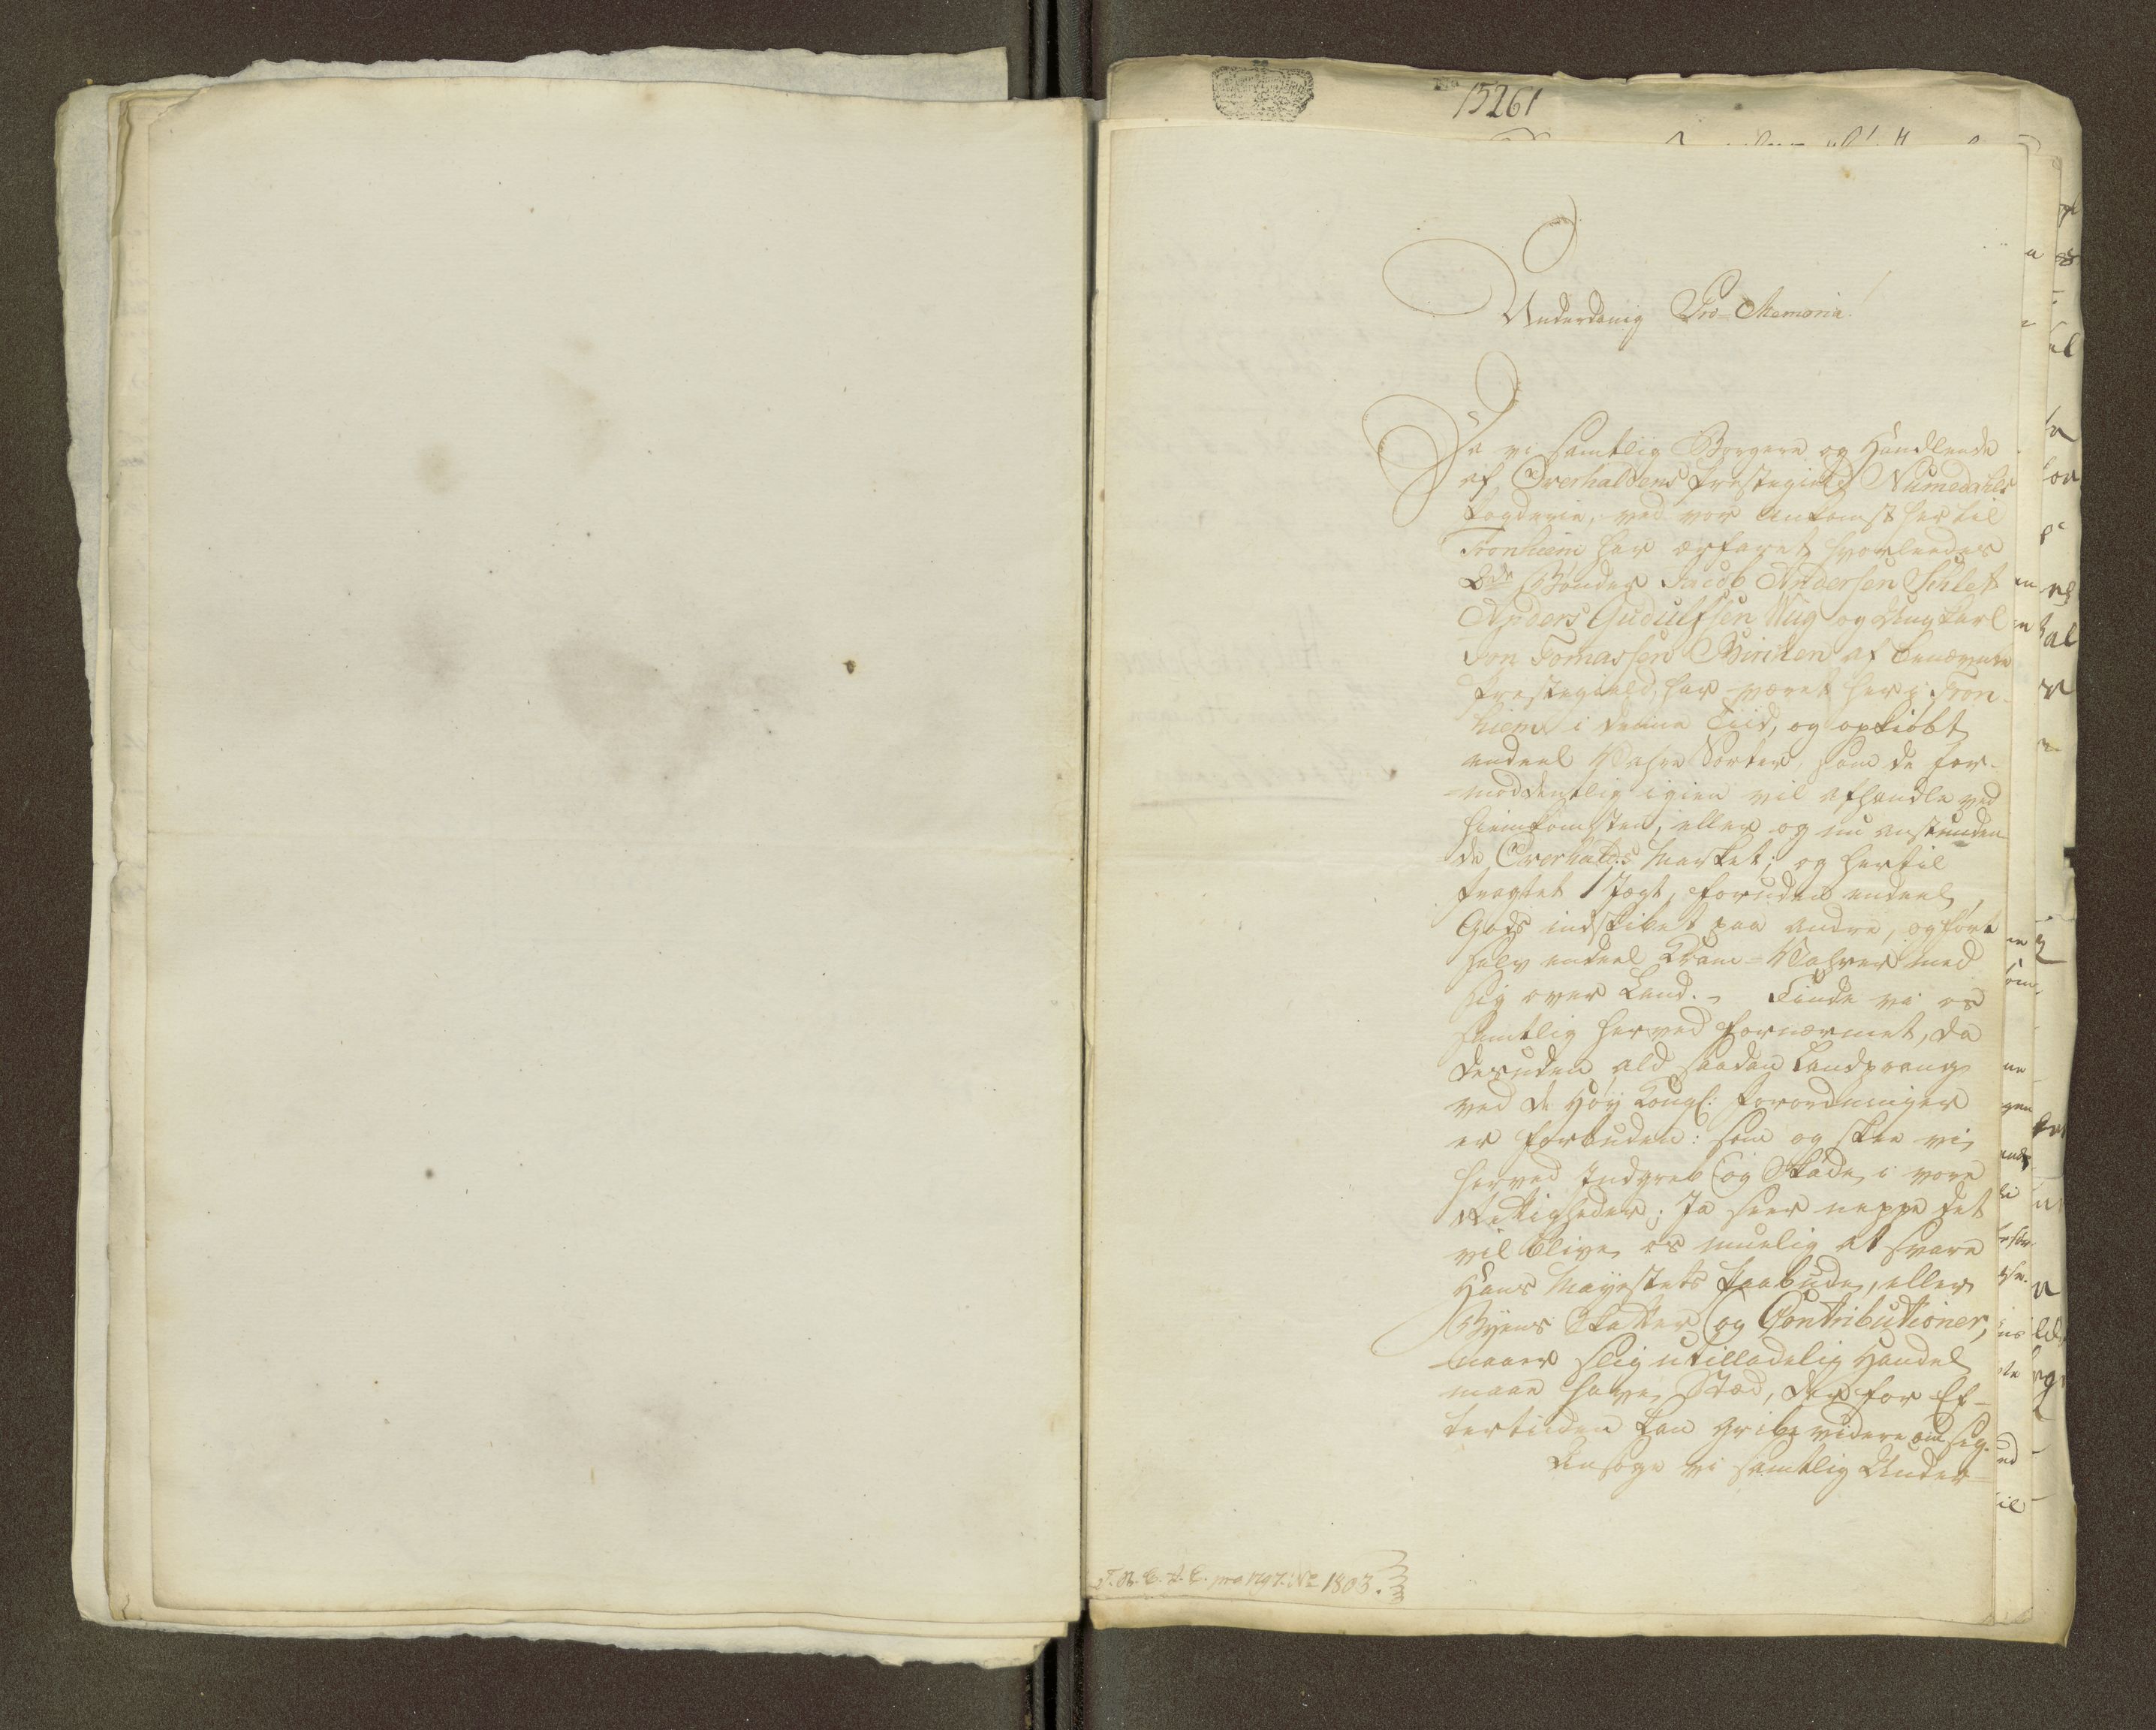 15261
Underdanig Pro-Memoria!
Da vi samtlig Borgere og Handlende
af Overhaldens Prestegield Numedahls
Fogderie, ved vor Ankomst her til
Tronhiem har erfaret hvorleedes
2de Bønder Jacob Andersen Schlet
Anders Gudulfsen Wug og Ungkarl
Jon Tomassen Biriken af benævnte
Prestegield, har været her i Tron-
hiem i denne Tiid, og opkiøbt
endeel Wahre Sorter, som de for-
moddentlig igien vil afhandle ved
hiemkomsten, eller og nu anstunden-
de Overhalds Market; og hertil
fragtet 1 Jægt, foruden endeel
Gods indskibet paa andre, og ført
selv endeel Kram-Wahrer med
sig over Land. - Finde vi os
samtlig herved fornærmet, da
desuden ald saadan Landprang
ved de Høy Kongl: Forordninger
er forbuden: som og skee vi
herved Indgreb og Skade i vore
Rettigheder; Ja seer neppe det
vil blive os muelig at svare
Hans Mayestets Paabude, eller
Byens Skatter og Contributioner,
naar slig utilladelig Handel
maae have Stæd, der for Ef-
tertiiden kan gribe videre om sig.
Ansøge vi samtlig Under-
T. N. C. A. C. pro 1797. No 1803.